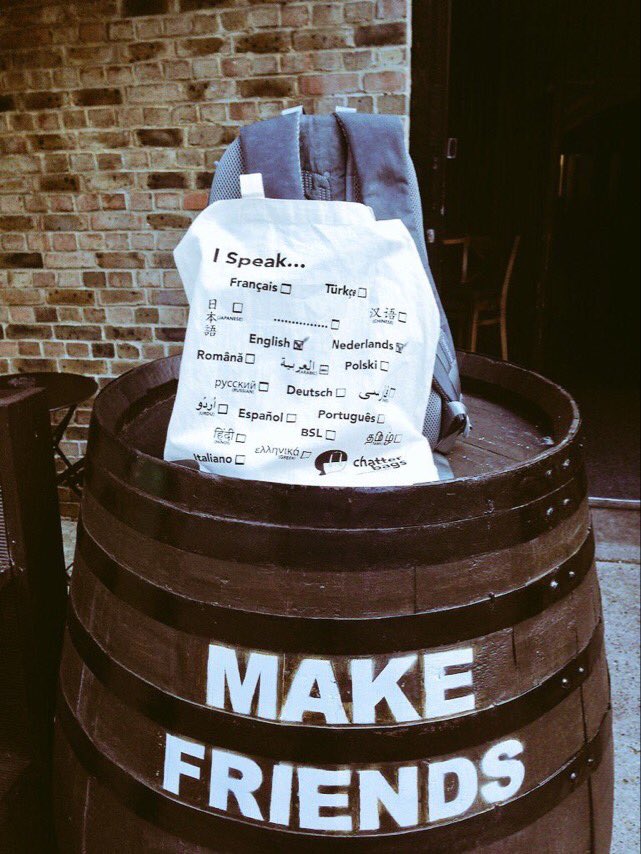 I Speak...
Français ☐ Türkçe ☐
日本語 (JAPANESE) ☐ 汉语 (CHINESE) ☐
............... ☐
English ☑ Nederlands ☑
Română ☐ العربية (ARABIC) ☐ Polski ☐
русский (RUSSIAN) ☐ Deutsch ☐ فارسی ☐
اُردُو (URDU) ☐ Español ☐ Português ☐
हिंदी (HINDI) ☐ BSL ☐ தமிழ் ☐
Italiano ☐ ελληνικά (GREEK) ☐ chatter bags
MAKE
FRIENDS